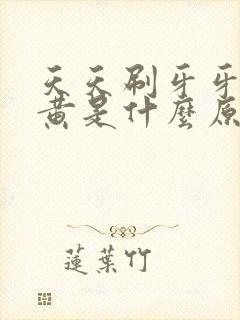 天天刷牙牙
黄是什麼原
蓮葉竹